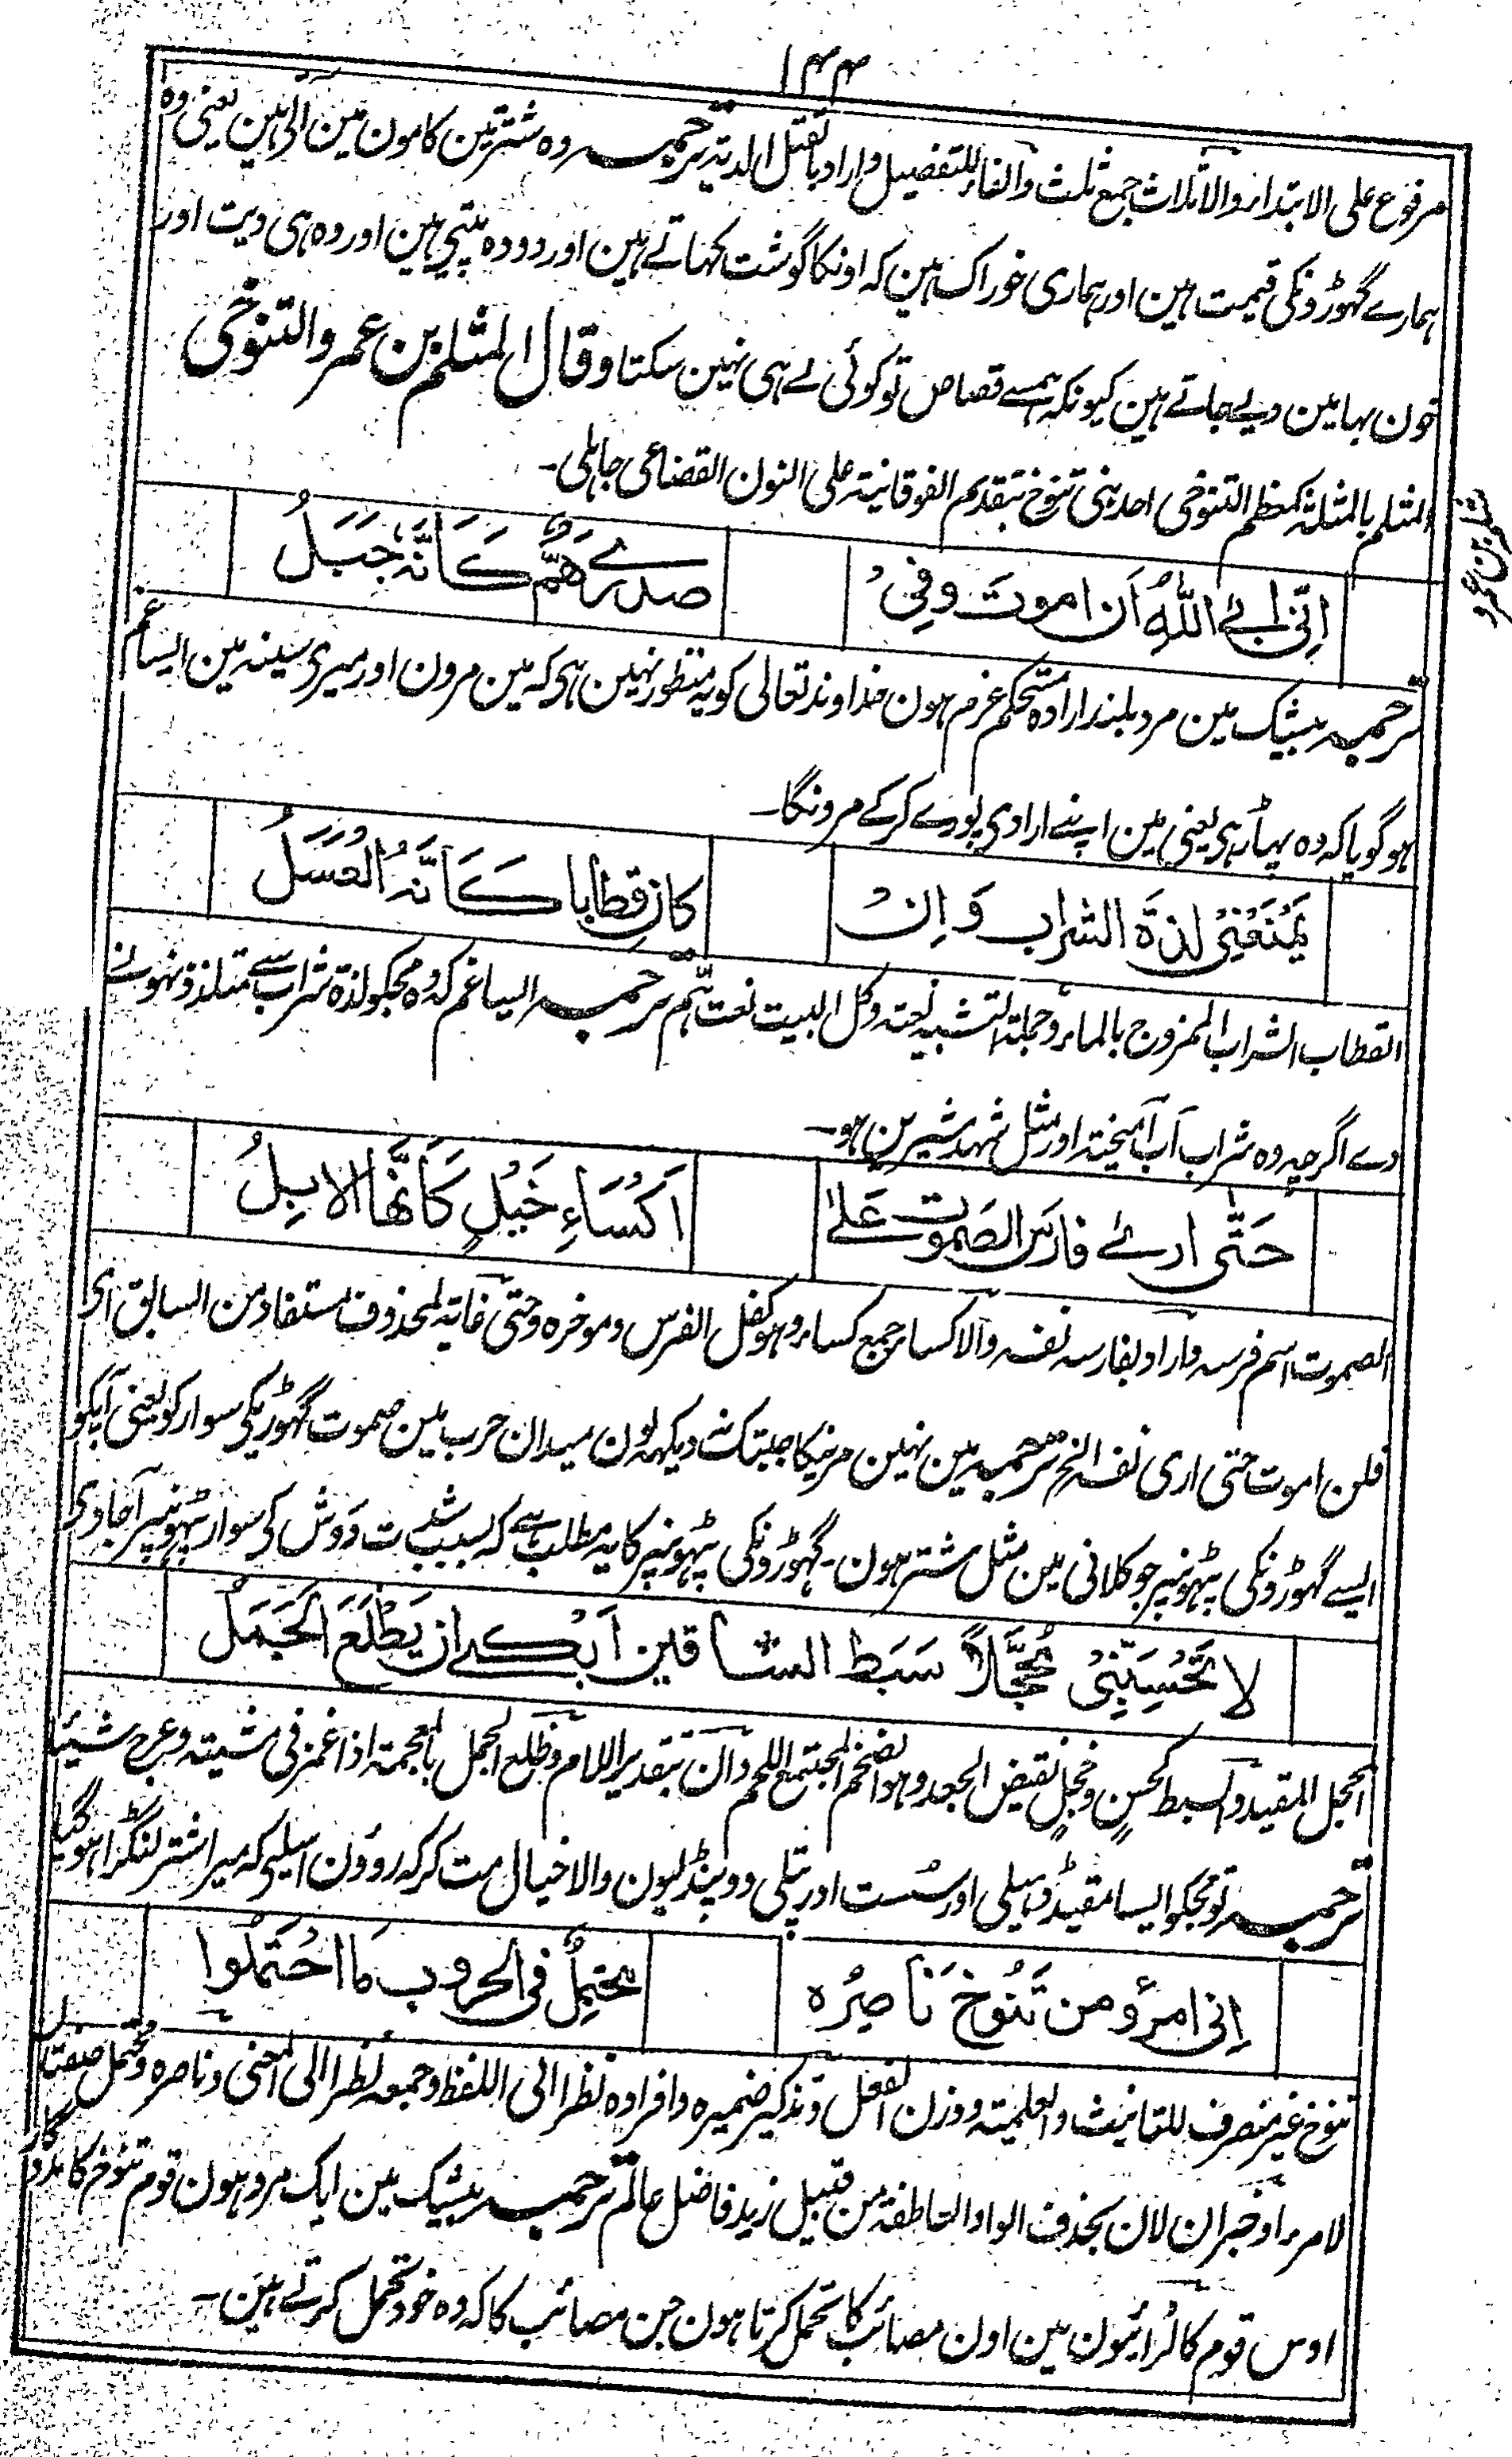 ۱۴۴
مرفوع علی الابتداء والاثلاث جمع ثلث والفاء للتفضیل واراد بالقتل الدیۃ ترجمہ وہ شتر تین کامون مین آتی ہین یعنی وہ
ہمارے گھوڑونکی قیمت ہین اور ہماری خوراک ہین کہ اونکا گوشت کہاتے ہین اور دودہ پیتے ہین اور وہ ہی دیت اور
خون بہا مین دیے جاتے ہین کیونکہ ہمسے قصاص تو کوئی لے ہی نہین سکتا وقال المثلم بن عمرو التنوخی
المثلم بالمثلثۃ کمعظم التنوخی احد بنی تنوخ بتقدیم الفوقانیۃ علی النون القضاعی جاہلی۔
مثلم بن عمرو
اِنّی ابے اللّٰہُ اَن اموتَ وفِیْ صدرے ھَمٌّ کَاَنَّہٗ جَبَلُ
ترجمہ بیشک مین مرد بلند ارادہ مستحکم عزم ہون خداوند تعالی کو یہ منظور نہین ہی کہ مین مرون اور میری سینہ مین ایسا غم
ہو گویا کہ وہ پہاڑ ہی یعنی مین اپنے ارادی پورے کرکے مرونگا۔
یَمْنَعُنِیْ لذۃَ الشراب وَاِنْ کان قطابا کَاَنَّہُ العَسَلُ
القطاب الشراب الممزوج بالماء وجملۃ التشبیہ نعتہ وکل البیت نعت ہم ترجمہ ایسا غم کہ وہ مجکو لذۃ شراب سے متلذذ نہونے
دے اگرچہ وہ شراب آب آمیختہ اور مثل شہد شیرین ہو۔
حَتّٰی ارےٰ فارسَ الصَموت عَلےٰ اَکْسَاءِ خَیْلٍ کَاَنَّھا الابِلُ
الصموت اسم فرسہ واراد بفارسہ نفسہ والاکساء جمع کساء وہو کفل الفرس وموخرہ وحتی غایۃ لمحذوف مستفاد من السابق ای
فلن اموت حتی اری نفسہ الخ ترجمہ مین نہین مرنیکا جبتک نہ دیکہہ لون میدان حرب مین صموت گھوڑیکی سوار کو یعنی آپکو
ایسے گھوڑونکی پٹہونپر جو کلانی مین مثل شتر ہون۔ گھوڑونکی پٹہونپر کا یہ مطلب ہے کہ بسبب شدت دَوِش کی سوار پٹہونپر آجاوی
لا تَحْسَبَنِّیْ مُحَجَّلاً سَبَطَ الساقین اَبْکے ان یَظْلَعَ الجَمَلُ
المحجل المقید والسبط کحسن وخجل نقیض الجعد وہو الضخم المجتمع اللحم وان بتقدیر اللام وظلع الجمل بالمعجمۃ اذا غمز فی مشیتہ وعرج شیئا
ترجمہ تو مجکو ایسا مقید ڈہیلی اور سست اور پتلی دو پنڈلیون والا خیال مت کر کہ روؤن اسلیی کہ میرا شتر لنگڑا ہو گیا
اِنی امرؤ من تَنُوخَ نَاصِرُہ محتمِلٌ فی الحروب مَا احْتَمَلُوا
تنوخ غیر منصرف للتانیث والعلمیۃ ووزن الفعل وتذکیر ضمیرہ وافرادہ نظرا الی اللفظ وجمعہ نظرا الی المعنی وناصرہ ومحتمل صفتان
لامرء او خبران لان بحذف الواو العاطفۃ من قبیل زید فاضل عالم ترجمہ بیشک مین ایک مرد ہون قوم تنوخ کا مددگار
اوس قوم کا لڑائیون مین اون مصائب کا تحمل کرتا ہون جن مصائب کا کہ وہ خود تحمل کرتے ہین۔